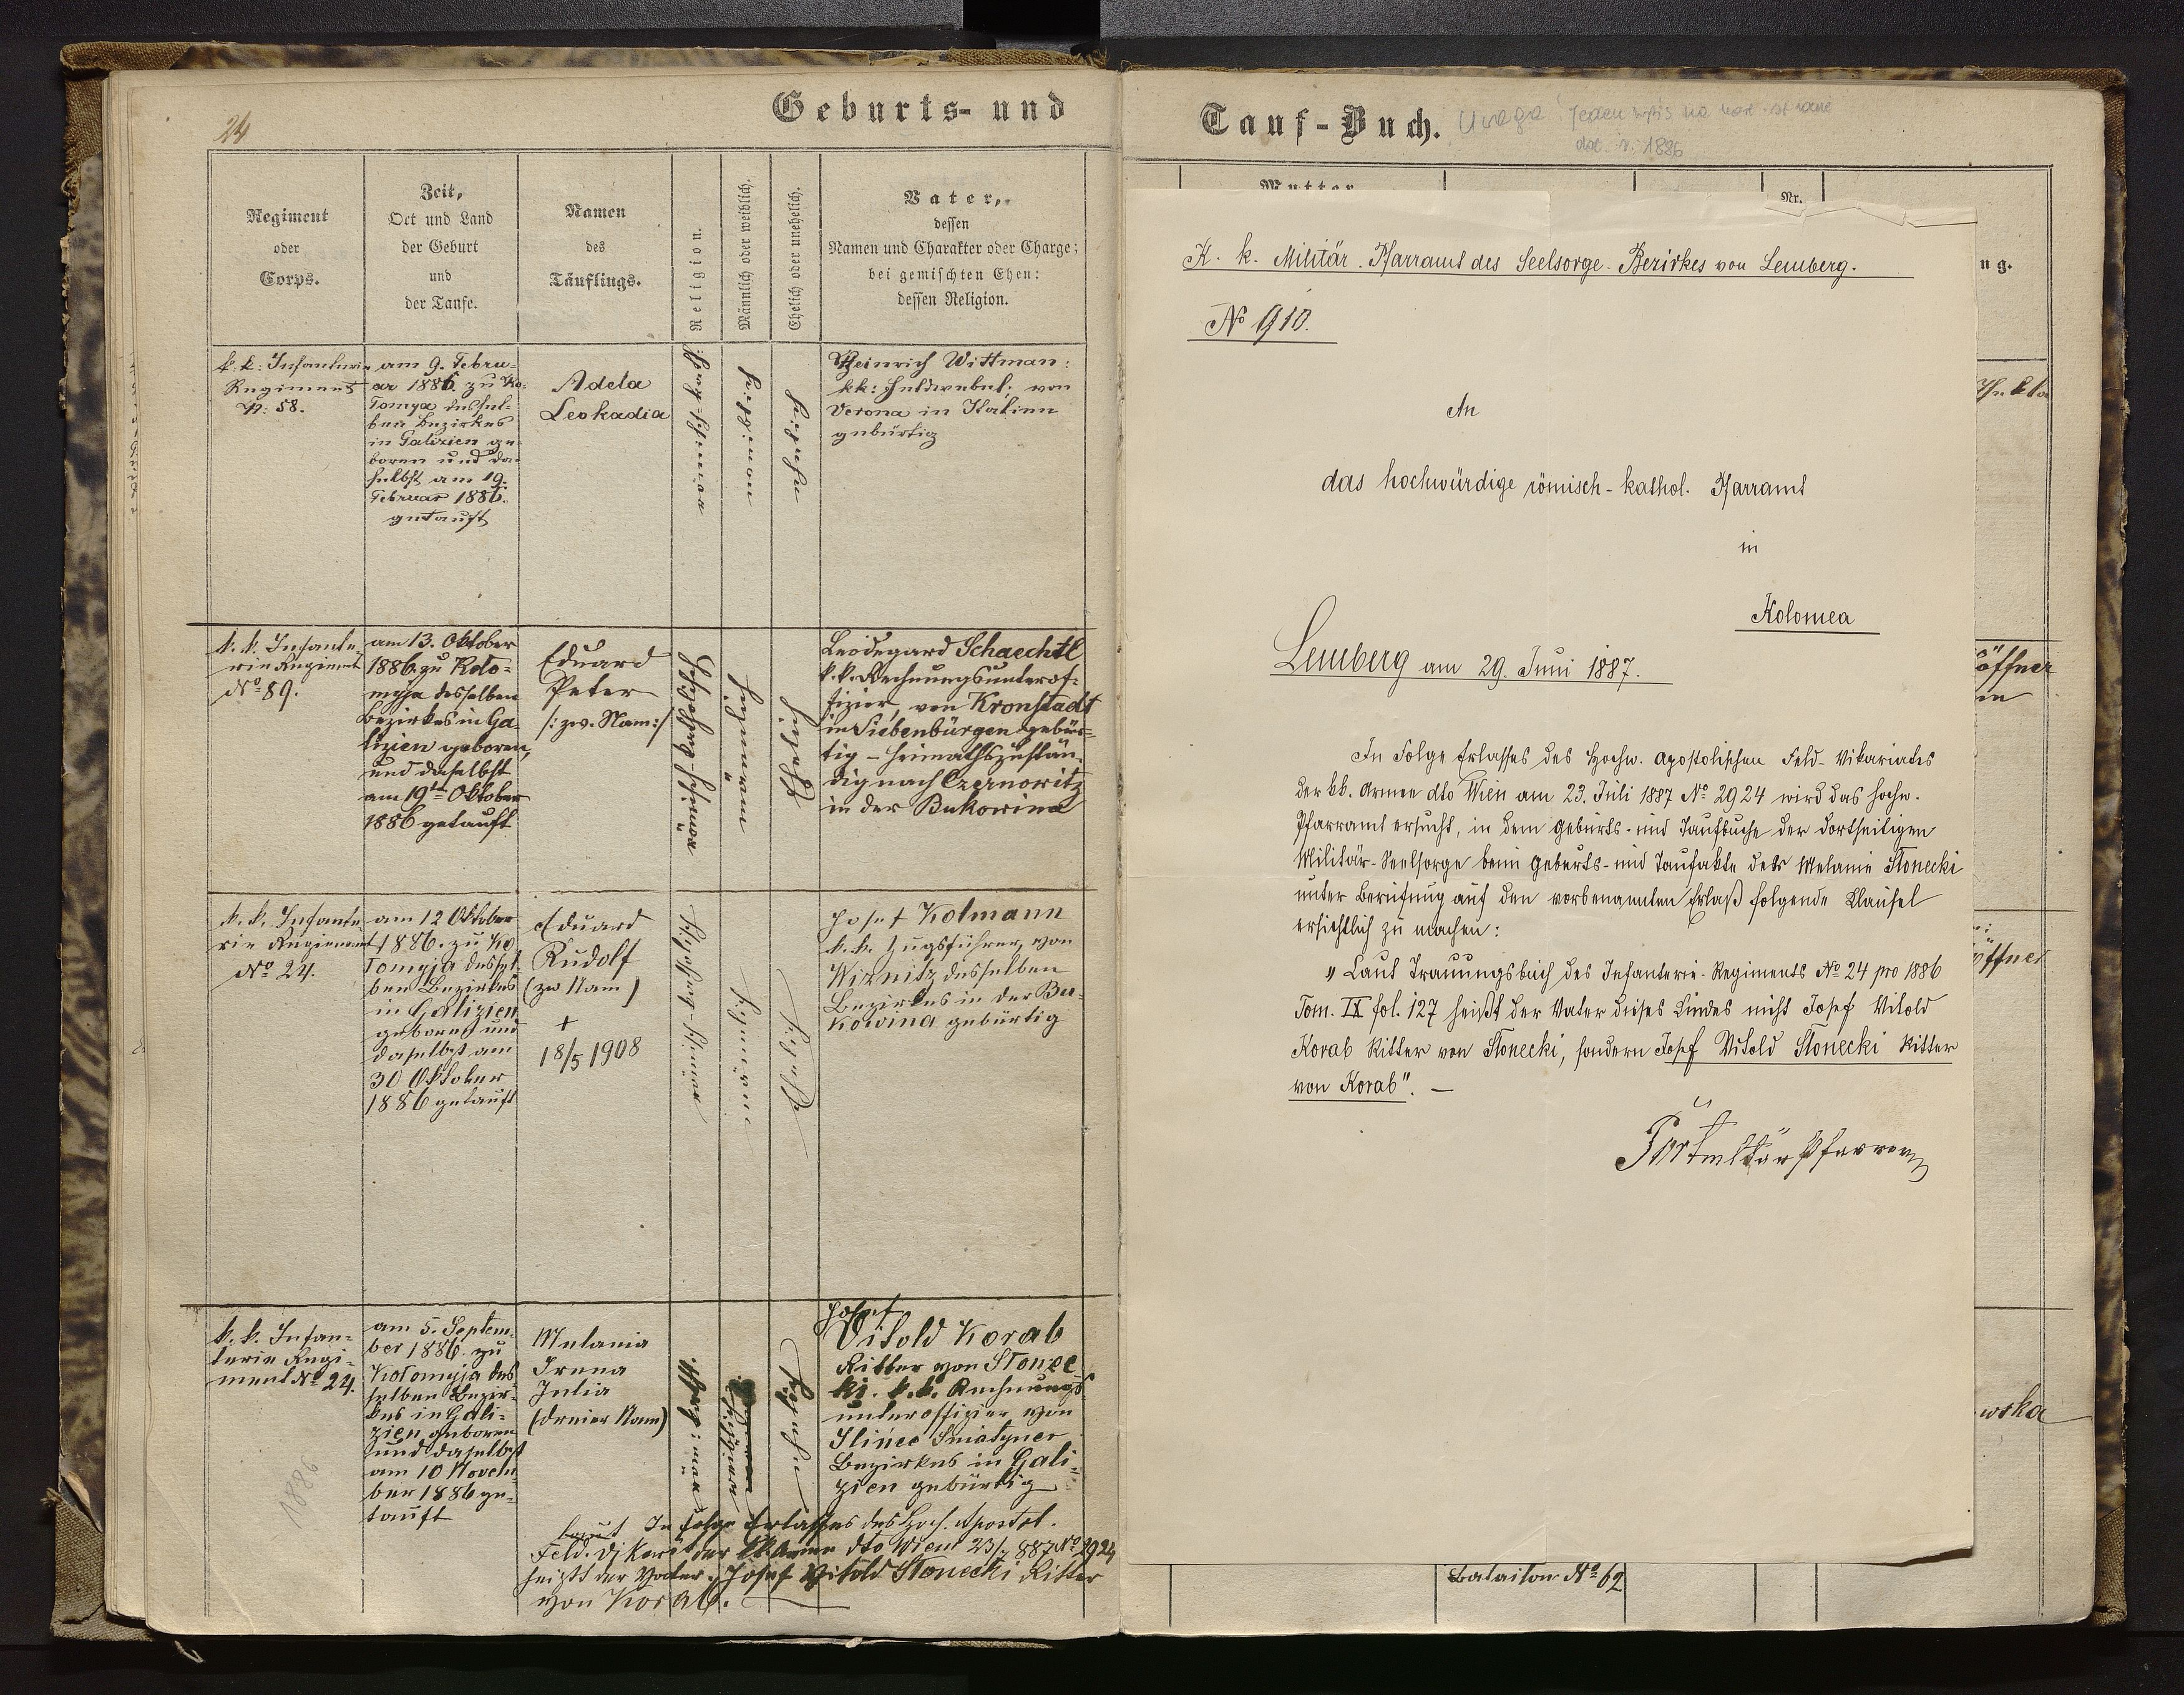 24
Geburts- und
Regiment
oder
Corps.
Zeit,
Ort und Land
der Geburt
und
der Taufe.
Namen
des
Täuflings.
Religion.
Männlich oder weiblich.
Ehelich oder unehelich.
Vater,
dessen
Namen und Charakter oder Charge;
bei gemischten Ehen:
dessen Religion.
k. k. Infanterie
Regiment
Nr. 58.
am 9. Febru-
ar 1886 zu Ko-
lomya dessel-
ben Bezirkes
in Galizien ge
boren und da-
selbst am 19.
Februar 1886.
getauft
Adela
Leokadia
Heinrich Wittman:
kk: Feldwebel, von
Verona in Italien
gebürtig
k. k. Infante
rie Regiment
No 89.
am 13. Oktober
1886 zu Kolo-
myja desselben
Bezirkes in Ga-
lizien geboren,
und daselbst
am 19ten Oktober
1886 getauft
Eduard
Peter
/: zw. Nam:/
Leodegard Schaechtl
k. k. Rechnungsunterof-
fizier, von Kronstadt
in Siebenbürgen gebür-
tig – heimathszustän-
dig nach Czernowitz
in der Bukowina
k. k. Infante
rie Regiement
No 24.
am 12 Oktober
1886. zu Ko
lomyja dessel-
ben Bezirkes
in Galizien
geboren und
daselbst am
30 Oktober
1886 getauft
Eduard
Rudolf
(zw Nam)
+
18/5 1908
Josef Kolmann
k. k. Zugsführer, von
Wiznitz desselben
Bezirkes in der Bu-
kowina gebürtig
k. k. Infan-
terie Regi-
ment No 24.
am 5. Septem-
ber 1886. zu
Kolomyja des
selben Bezir-
kes in Gali-
zien geboren
und daselbst
am 10 Novem
ber 1886 ge-
tauft
Melania
Irena
Julia
(dreier Nam)
Josef
Vitold Korab
Ritter von Słonec
ki. k. k. Rechnungs
unteroffizier von
Ilince Sniatyner
Bezirkes in Gali
zien gebürtig
1886
Laut In Folge Erlasses des Hoch. Apostol.
Feld. Vikariat der kk. Armee dto Wien 23/7 887 No 2924
heißt der Vater: Josef Vitold Słonecki Ritter
von Korab.
Tauf-Buch.
Uwaga
1886
Mutter
Nr.
ng.
K. k. Militär-Pfarramt des Seelsorge-Bezirkes von Lemberg.
No 910.
An
das hochwürdige römisch-kathol. Pfarramt
in
Kolomea
Lemberg am 29. Juni 1887.
In Folge Erlasses des Hochw. Apostolischen Feld-Vikariates
der kk. Armee dto Wien am 23. Juli 1887 No 2924 wird das hochw.
Pfarramt ersucht, in dem Geburts- und Taufbuche der dortseitigen
Militär-Seelsorge beim Geburts- und Taufakte der Melanie Słonecki
unter Berufung auf den vorbenannten Erlaß folgende Klausel
ersichtlich zu machen:
"Laut Trauungsbuch des Infanterie-Regiments No 24 pro 1886
Tom. IX fol. 127 heißt der Vater dieses Kindes nicht Josef Vitold
Korab Ritter von Słonecki, sondern Josef Vitold Słonecki Ritter
von Korab". —
Militär Pfarrer
öffner
in
öffner
wska
Bataillon No 62